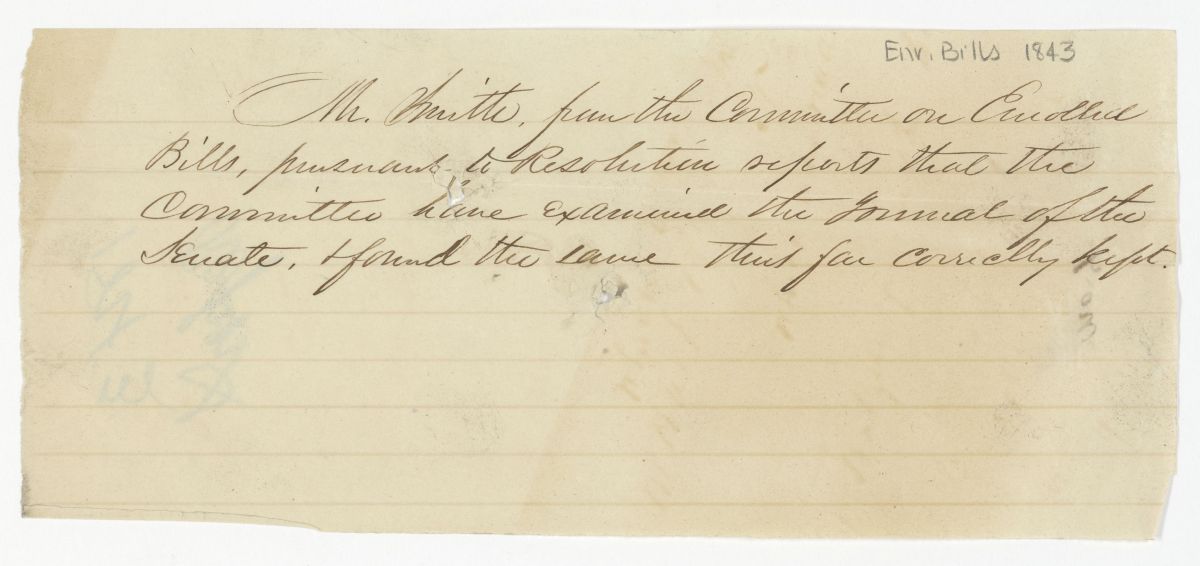 Enr. Bills 1843
Mr. Smith, from the Committee on Enrolled
Bills, pursuant to Resolution reports that the
Committee have examined the Journal of the
Senate, & found the same thus far correctly kept.